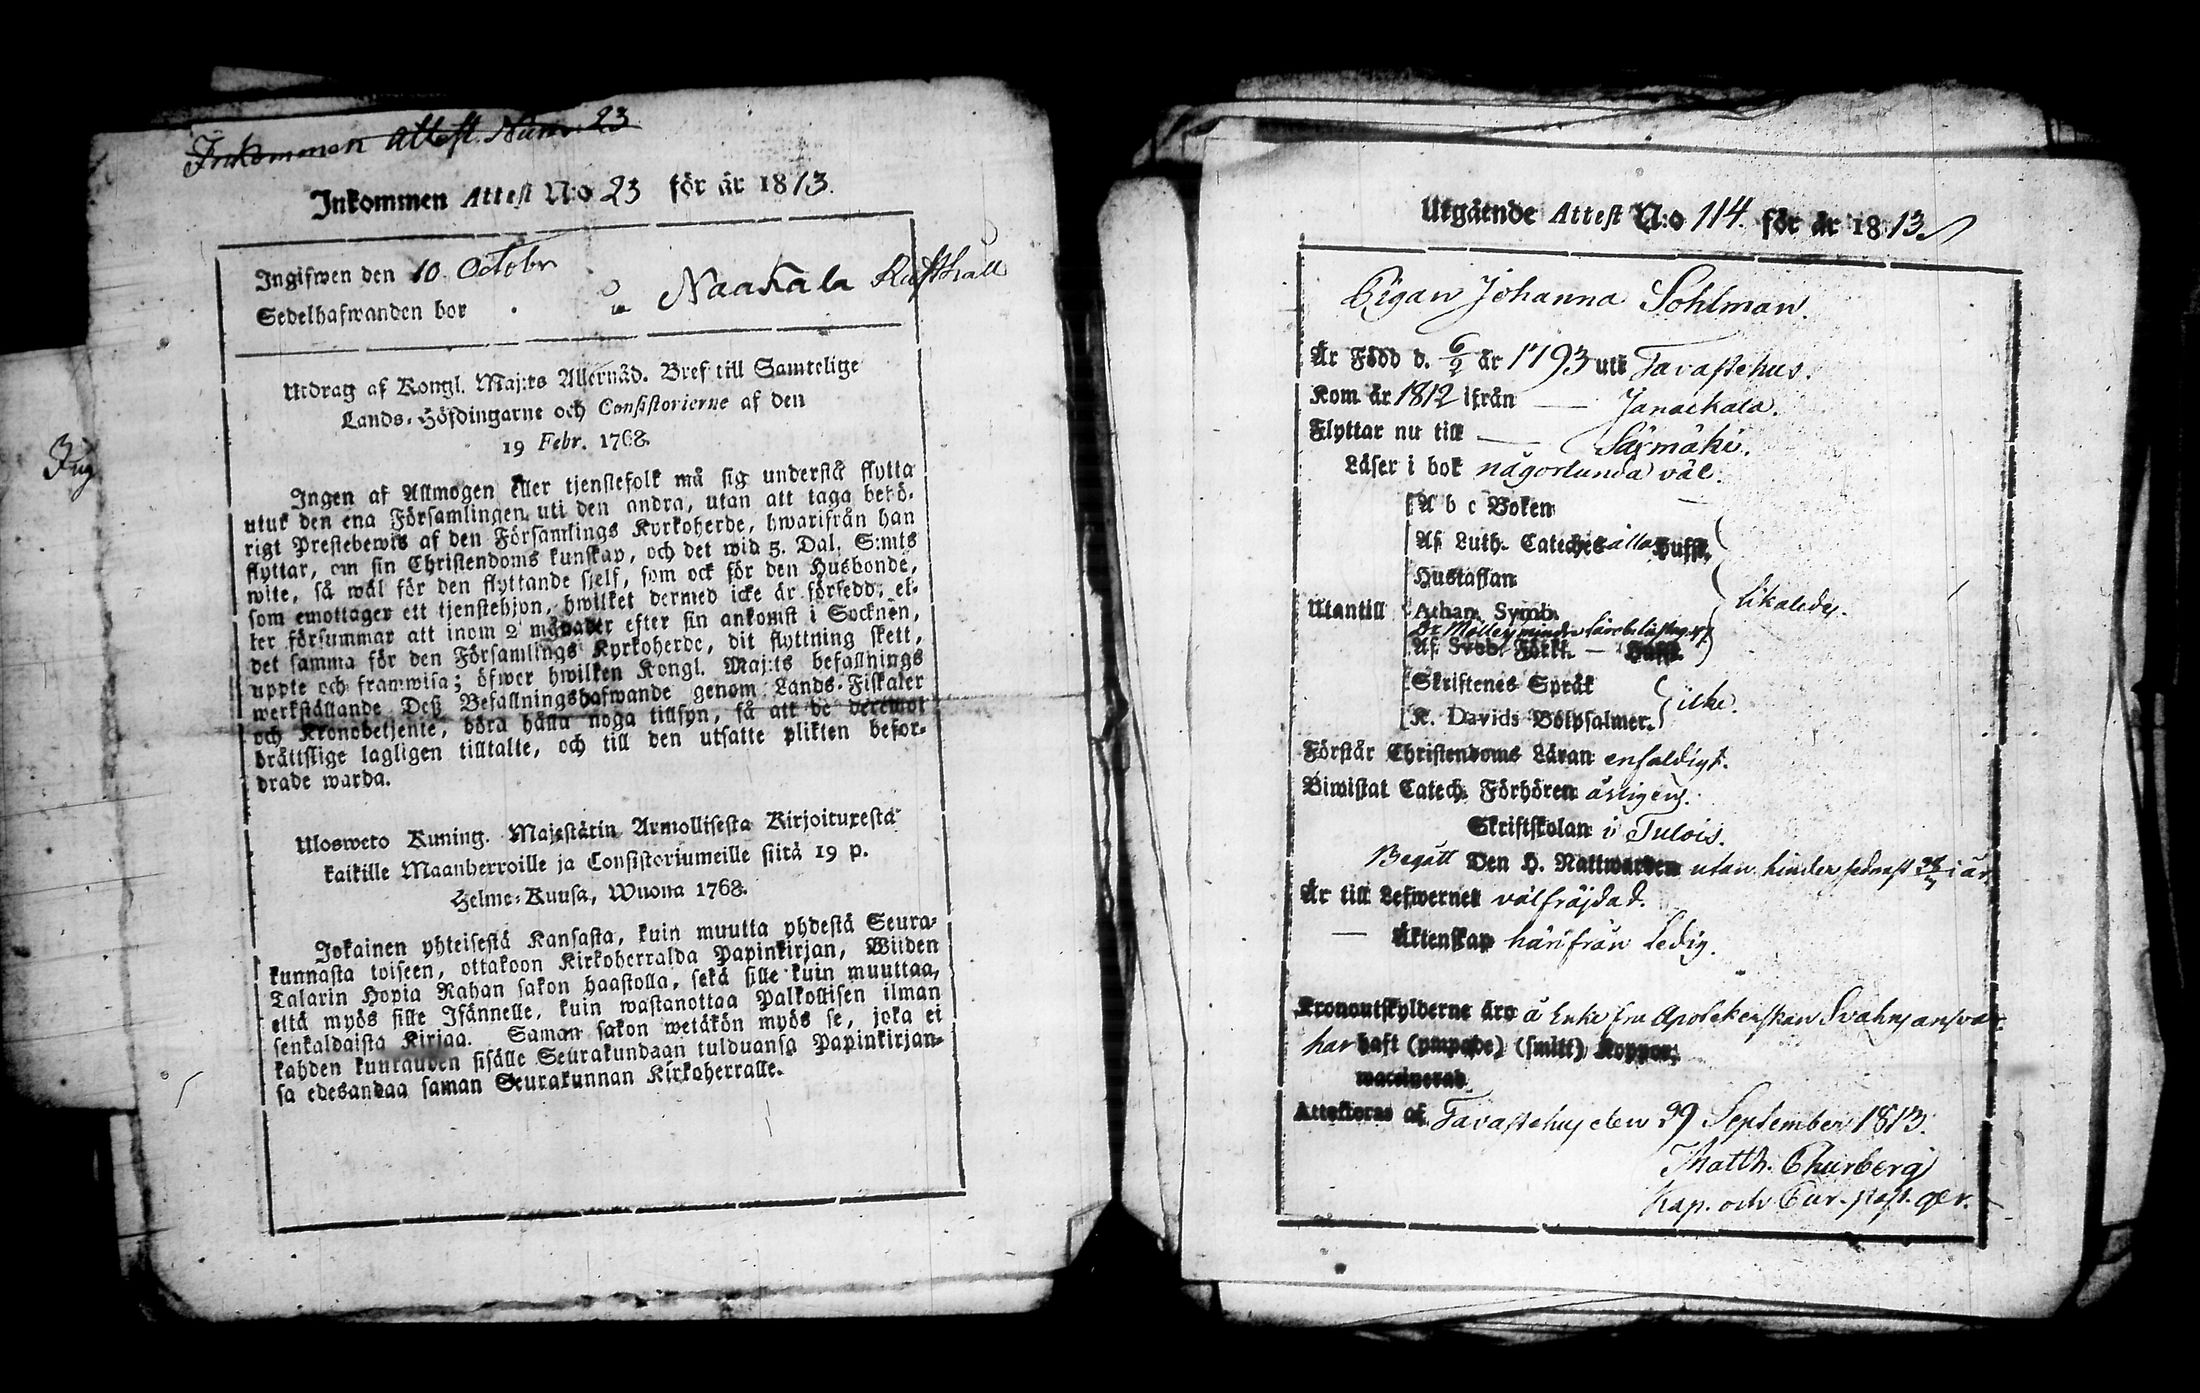 Inkommen Attest Num. 23
Inkommen Attest N:o 23 för år 1813.
Ingifwen den 10 Octobr
Sedelhafwanden bor å Naakala Rusthåll
Utdrag af Kongl. Maj:ts Allernåd. Bref till Samtelige
Lands-Höfdingarne och Consistorierne af den
19 Febr. 1768.
Ingen af Allmogen eller tjenstefolk må sig understå flytta
utur den ena Församlingen uti den andra, utan att taga behö-
rigt Prestebewis af den Församlings Kyrkoherde, hwarifrån han
flyttar, om sin Christendoms kunskap, och det wid 5. Dal. S:mts
wite, så wäl för den flyttande sjelf, som ock för den Husbonde,
som emottager ett tjenstehjon, hwilket dermed icke är försedd; el-
ler försummar att inom 2 månader efter sin ankomst i Socknen,
det samma för den Församlings Kyrkoherde, dit flyttning skett,
uppte och framwisa; öfwer hwilken Kongl. Maj:ts befallnings
werkställande Deß Befallningshafwande genom Lands-Fiskaler
och Kronobetjente, böra hålla noga tillsyn, så att de deremot
brättslige lagligen tilltalte, och till den utsatte plikten befor-
drade warda.
Ulosweto Kuning. Majestätin Armollisesta Kirjoituxesta
kaikille Maanherroille ja Consistoriumeille siitä 19 p.
Helme-Kuusa, Wuona 1768.
Jokainen yhteisestä Kansasta, kuin muutta yhdestä Seura-
kunnasta toiseen, ottakoon Kirkoherralda Papinkirjan, Wiiden
Talarin Hopia Rahan sakon haastolla, sekä sille kuin muuttaa,
että myös sille Isännelle, kuin wastanottaa Palkollisen ilman
senkaldaista Kirjaa. Saman sakon wetäkön myös se, joka ei
kahden kuukauden sisälle Seurakundaan tulduansa Papinkirjan-
sa edesandaa saman Seurakunnan Kirkoherralle.
Utgående Attest N:o 114. för år 1813
Pigan Johanna Sohlman.
Är Född d. 6/2 år 1793 uti Tavastehus.
Kom år 1812 ifrån — Janackala.
Flyttar nu till — Särmäki.
Läser i bok någorlunda väl.
A b c Boken
Af Luth. Cateches alla Hufst.
Hustaflan
Utantill Athan. Symb. likaledes.
Af Sveb. Förkl. — Hufst.
Skriftenes Språk
K. Davids Botpsalmer. icke.
Förstår Christendoms Läran enfaldigt.
Biwistat Catech. Förhören årligen.
Skriftskolan i Tulois.
Begått Den H. Nattwarden utan hinder sednast i år.
Är till Lefwernet välfräjdad.
— Äktenskap härifrån ledig.
Kronoutskylderne äro å Enke fru Apotekerskan Svahns ansvar
har haft (ympade) (smitt) Koppor,
waccinerad.
Attesteras af Tavastehus den 29 September 1813.
Matth. Churberg
Kap. och Cur. past. ger.